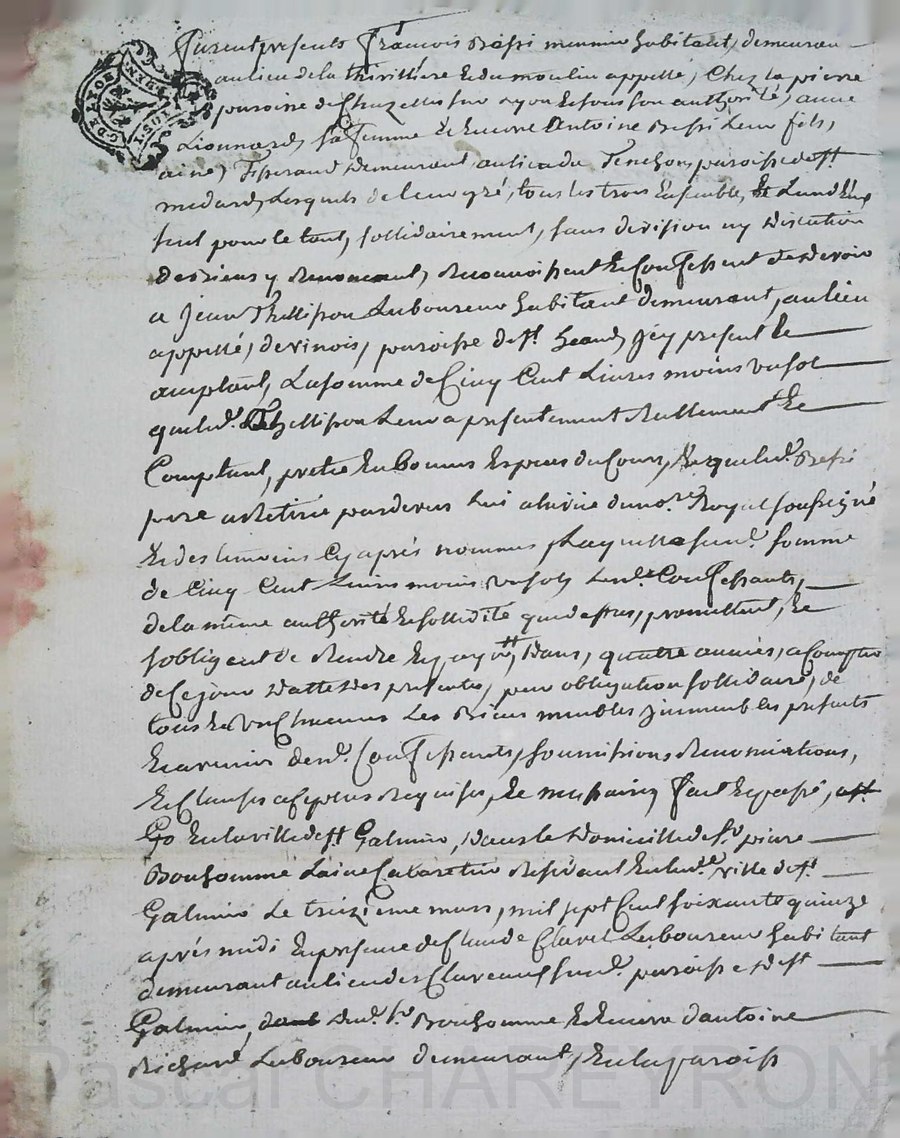 furent presents françois Bessi meunier habitant, demeurant
au lieu de la thivilliere & du moulin appellé, Chez la pierre
paroisse de Chazelles sur Lyon & sous son authorité, anne
Lionnard, sa femme & Encore Antoine Bessi Leur fils,
ainé, Tisserand Demeurant au lieu du paroisse de st
medard, Lesquels de leur gré, tous les trois Ensemble, & L'un d'Eux
seul pour le tout, sollidairement, sans division ny Discution
de Biens y Renoncent, Reconnoissent & Confessent Debvoir
a Jean Thellisson Laboureur habitant demeurant, au lieu
appellé, devinois, paroisse de st. heand, jcy present &
acceptant, La somme de Cinq Cent Livres moins un sol
que led. Thellisson Leur a presentement Reellement &
Comptant, pretée En bonnes Especes du Cours, Lesquels d. Bessi
pere a Retirée pardevers Lui a la vüe du no.re Royal soussigné
& des temoins Cy après nommés, Laquelle susd. somme
de Cinq Cent Livres moins un sol, Lesd.s Confessants,
de la même authorité & sollidité que dessus, promettent, &
s'obligent de Rendre Dans, quatre années, a Compter
de Ce jour Datte Des presentes, pour obligation sollidaire, de
tous & un Chacuns Les Biens meubles jmmeubles presents
& avenirs desd. Confessants, soumissions Renonciations,
& Clauses a Ce plus Requises, & necessaires, fait & passé, a st
Go En la ville de st Galmier, Dans le Domicille de s.r pierre
Bonhomme L'aine Cabaretier Residant En lad.e ville de st.
Galmier Le treizieme mars, mil sept Cent soixante quinze
après midi En presence de Claude Clavel Laboureur habitant
demeurant au lieu des Claveaux susd. paroisse de st
Galmier, dud. s.r Bonhomme & Encore d'antoine
Richard, Laboureur demeurant, En la paroisse
Pascal CHAREYRON